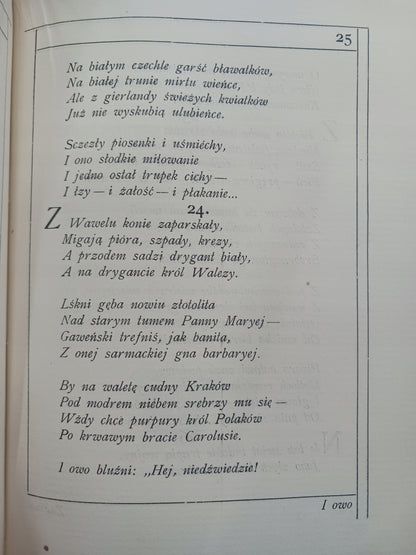 25
Na białym czechle garść bławatków,
Na białej trunie mirtu wieńce,
Ale z gierlandy świeżych kwiatków
Już nie wyskubią ulubieńce.
Sczezły piosenki i uśmiéchy,
I ono słodkie miłowanie
I jedno ostał trupek cichy —
I łzy — i żałość — i płakanie...
24.
Z Wawelu konie zaparskały,
Migają pióra, szpady, krezy,
A przodem sadzi drygant biały,
A na drygancie król Walezy.
Lśkni gęba nowiu złotolita
Nad starym tumem Panny Maryej —
Gaweński trefniś, jak banita,
Z onej sarmackiej gna barbaryej.
By na waletę cudny Kraków
Pod modrem niébem srebrzy mu się —
Wżdy chce purpury król Polaków
Po krwawym bracie Carolusie.
I owo bluźni: „Hej, niedźwiedzie!
I owo